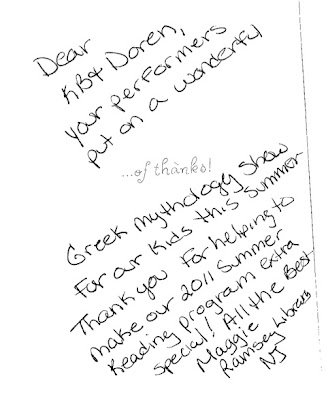 Dear
KB& Doren,
your performers
put on a wonderful
...of thanks!
Greek mythology show
For our kids this summer
Thank you for helping to
make our 2011 Summer
Reading Program extra
special! All the Best.
Maggie
Ramsey Library
NJ